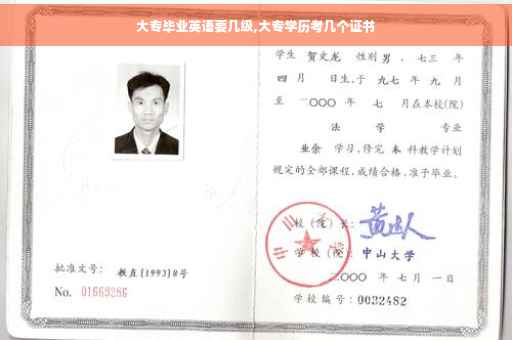 大专毕业英语要几级,大专学历考几个证书
学生 贺文龙 性别男、七三 年
四月 日生,于 九七 年 九 月
至 二〇〇〇 年 七 月在本校(院)
法 学 专业
业余 学习,修完 本 科教学计划
规定的全部课程,成绩合格,准予毕业。
校(院)长:
学校(院): 中山大学
二〇〇〇 年 七 月 一 日
学校编号:0032482
批准文号: 教直[1993]8号
No. 01669286